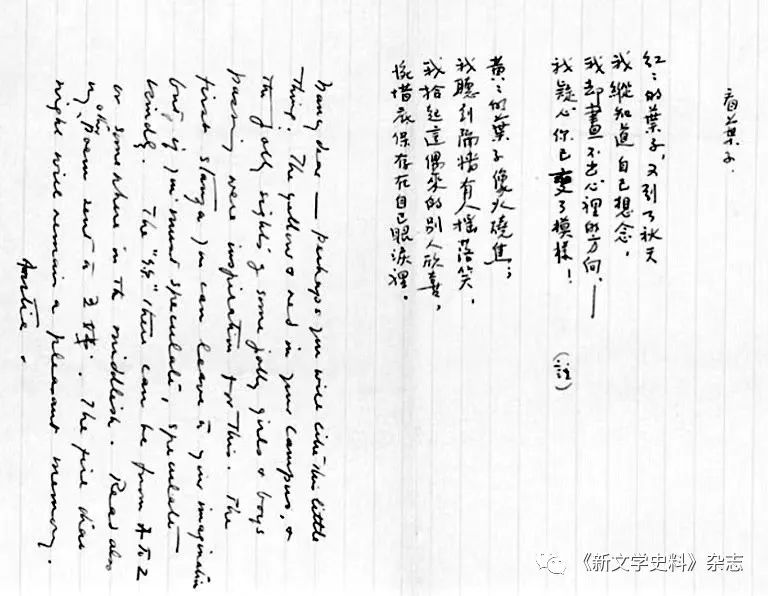 看葉子.
紅〻的葉子,又到了秋天
我縱知道自己想念,
我却畫不出心裡的方向,——
我疑心你已變了模樣! (註)
黃〻的葉子像火燒焦;
我聽到隔墻有人搖落笑,
我拾起這偶來的別人欣喜,
惋惜底保存在自己眼淚裡。
dear — perhaps you will like this little
thing. The yellow & red in your campus, &
the jolly sights of some jolly girls & boys
passing were inspiration for this. The
first stanza you can leave to your imagination
but if you must speculate, speculate
kindly. The "你" there can be from A to Z
or somewhere in the middlish. Read also
my other poem sent to 之琳. The
night will remain a pleasant memory.
Auntie.
《新文学史料》杂志